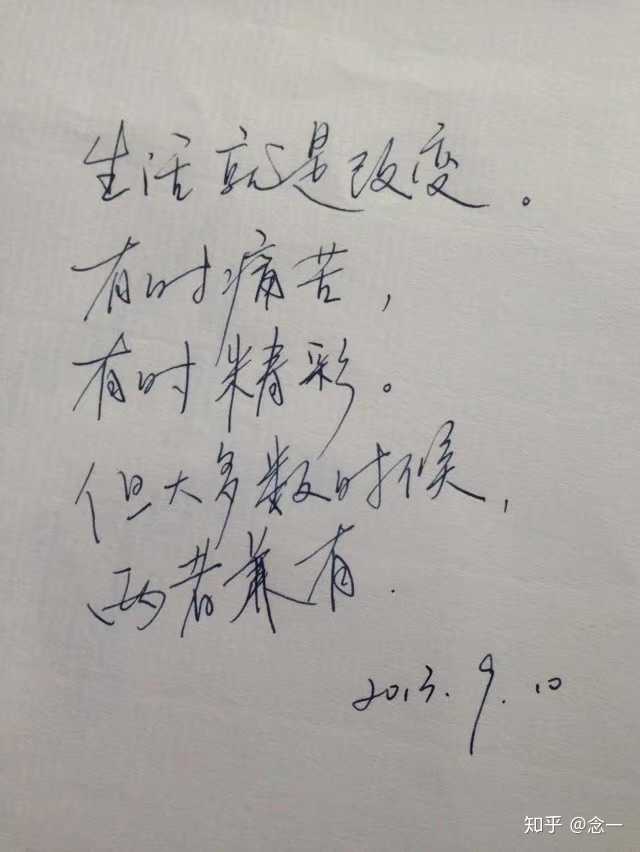 生活就是改变。
有时痛苦，
有时精彩。
但大多数时候，
两者兼有.
2013.9.10
知乎 @念一